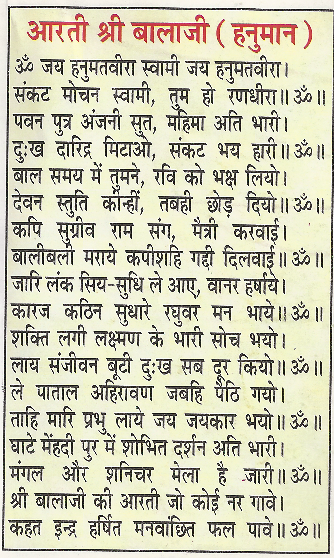 आरती श्री बालाजी ( हनुमान )
ॐ जय हनुमतवीरा स्वामी जय हनुमतवीरा।
संकट मोचन स्वामी, तुम हो रणधीरा॥ॐ॥
पवन पुत्र अंजनी सुत, महिमा अति भारी।
दुःख दारिद्र मिटाओ, संकट भय हारी॥ॐ॥
बाल समय में तुमने, रवि को भक्ष लियो।
देवन स्तुति कीन्हीं, तबही छोड़ दियो॥ॐ॥
कपि सुग्रीव राम संग, मैत्री करवाई।
बालीबली मराये कपीशहि गद्दी दिलवाई॥ॐ॥
जारि लंक सिय-सुधि ले आए, वानर हर्षाये।
कारज कठिन सुधारे रघुवर मन भाये॥ॐ॥
शक्ति लगी लक्ष्मण के भारी सोच भयो।
लाय संजीवन बूटी दुःख सब दूर कियो॥ॐ॥
ले पाताल अहिरावण जबहि पैठि गयो।
ताहि मारि प्रभु लाये जय जयकार भयो॥ॐ॥
घाटे मेंहदी पुर में शोभित दर्शन अति भारी।
मंगल और शनिचर मेला है जारी॥ॐ॥
श्री बालाजी की आरती जो कोई नर गावे।
कहत इन्द्र हर्षित मनवांछित फल पावे॥ॐ॥